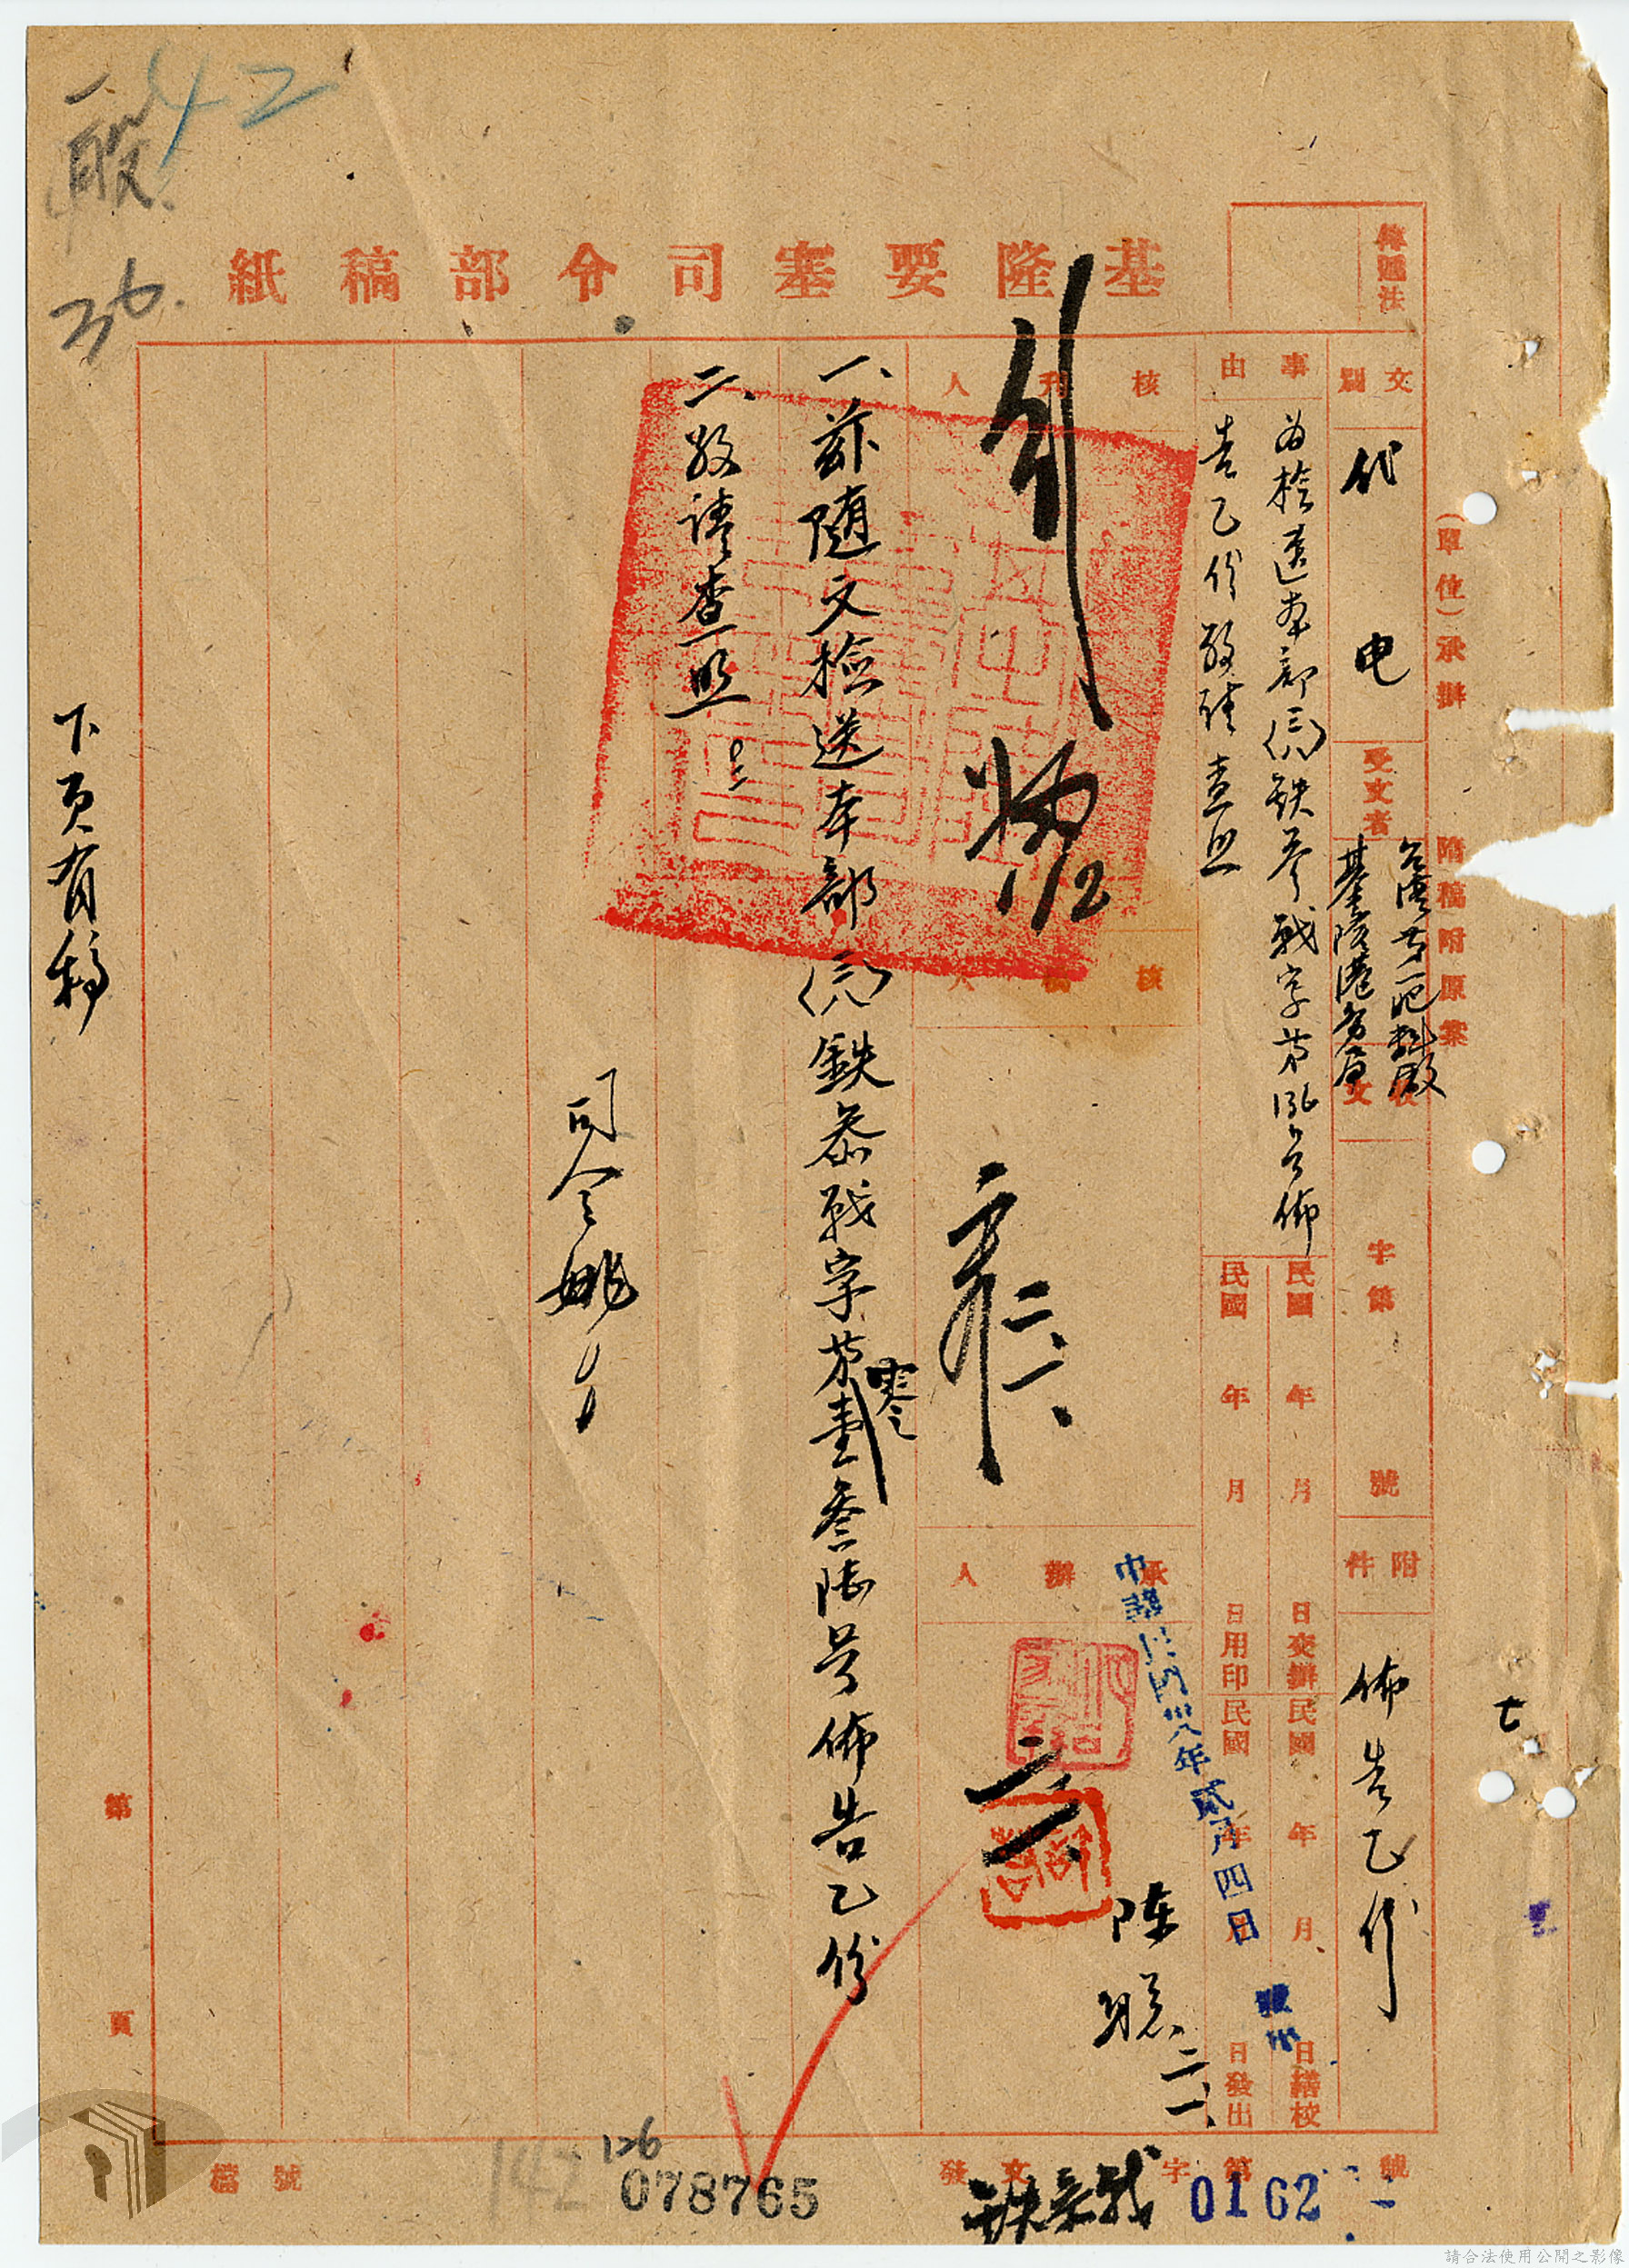 42
一般
36.
基隆要塞司令部稿紙
傳遞法
(單位)承辦
隨稿附原案
文別
代電
受文者
台灣第一肥料廠
基隆港務局
收文
字第
號
附件
佈告乙份
事由
為檢送本部(38)鉄參戰字第0136號佈
告乙份敬請查照
民國 年 月 日交辦
民國 年 月 日繕校
民國 年 月 日用印
民國 年 月 日發出
核判人
核稿人
承辦人
1/2
二、一、
中華民國卅八年貳月四日
陈聪
二、一、
一、茲隨文檢送本部(38)鉄叅戰字第零壹叁陸号佈告乙份
二、敬請查照
司令姚
下頁有稿
第 頁
七
檔號
142
126
078765
發文 鉄叅戰 字第 0162 號
請合法使用公開之影像